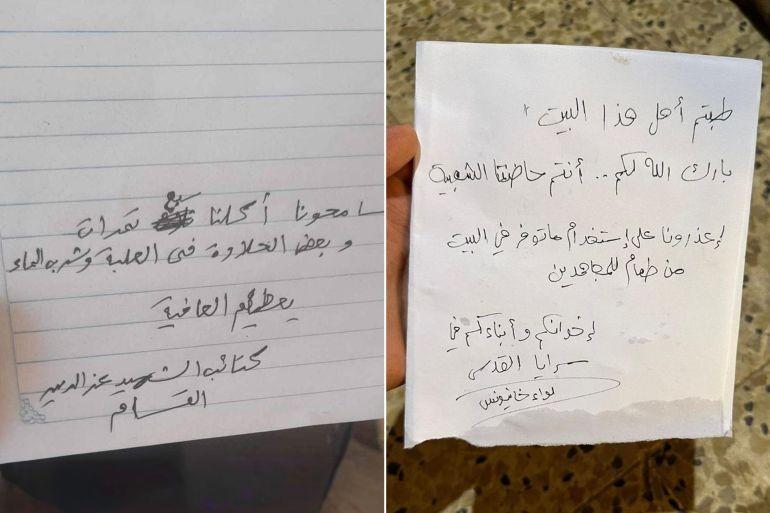 سامحونا أكلنا سبع تمرات
و بعض الحلاوة فى العلبة وشربه الماء
يعطيكم العافية
كتائب الشهيد عز الدين
القسام
طبتم أهل هذا البيت
بارك الله لكم .. أنتم حاضنتنا الشعبية
إعذرونا على إستخدام ماتوفر في البيت
من طعام للمجاهدين
إخوانكم وأبناءكم في
سرايا القدس
لواء خانيونس